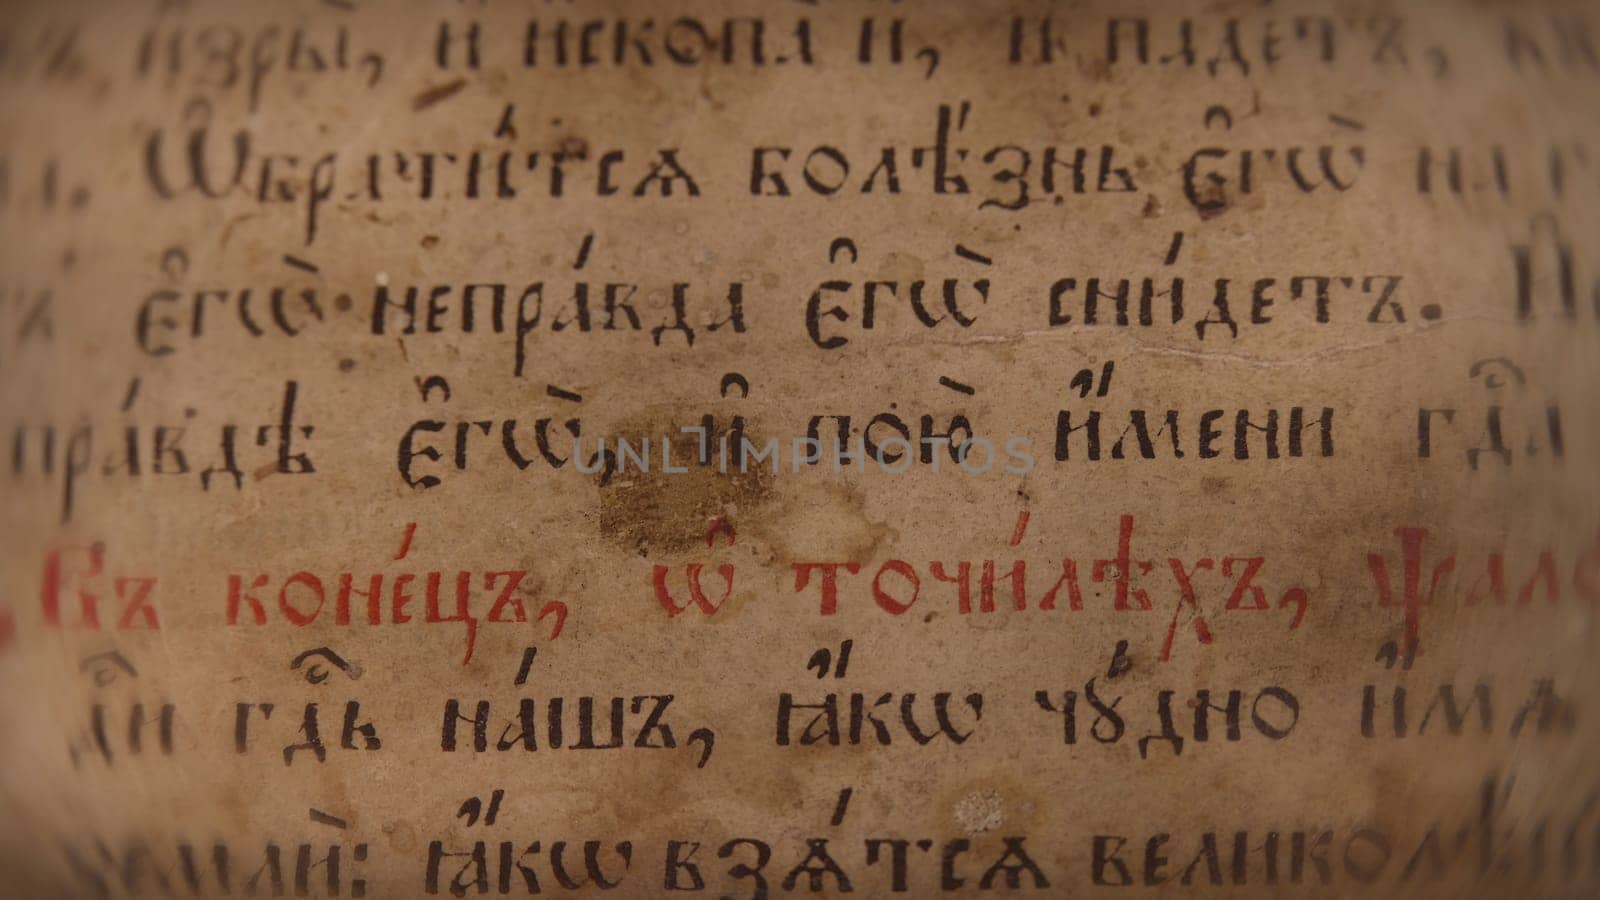 и҆зры̀, и҆ и҆скопа̀ и҆, и҆ паде́тъ,
Ѡ҆брати́тсѧ болѣ́знь є҆гѡ̀ на г
є҆гѡ̀ непра́вда є҆гѡ̀ сни́детъ.
пра́вдѣ є҆гѡ̀, и҆ пою̀ и҆́мени гдⷭ҇а
Въ коне́цъ, ѡ҆ точи́лѣхъ, ѱало
гдⷭ҇ь на́шъ, ꙗ҆́кѡ чꙋ́дно и҆́мѧ
землѝ: ꙗ҆́кѡ взѧ́тсѧ великолѣ́
UNLIMPHOTOS